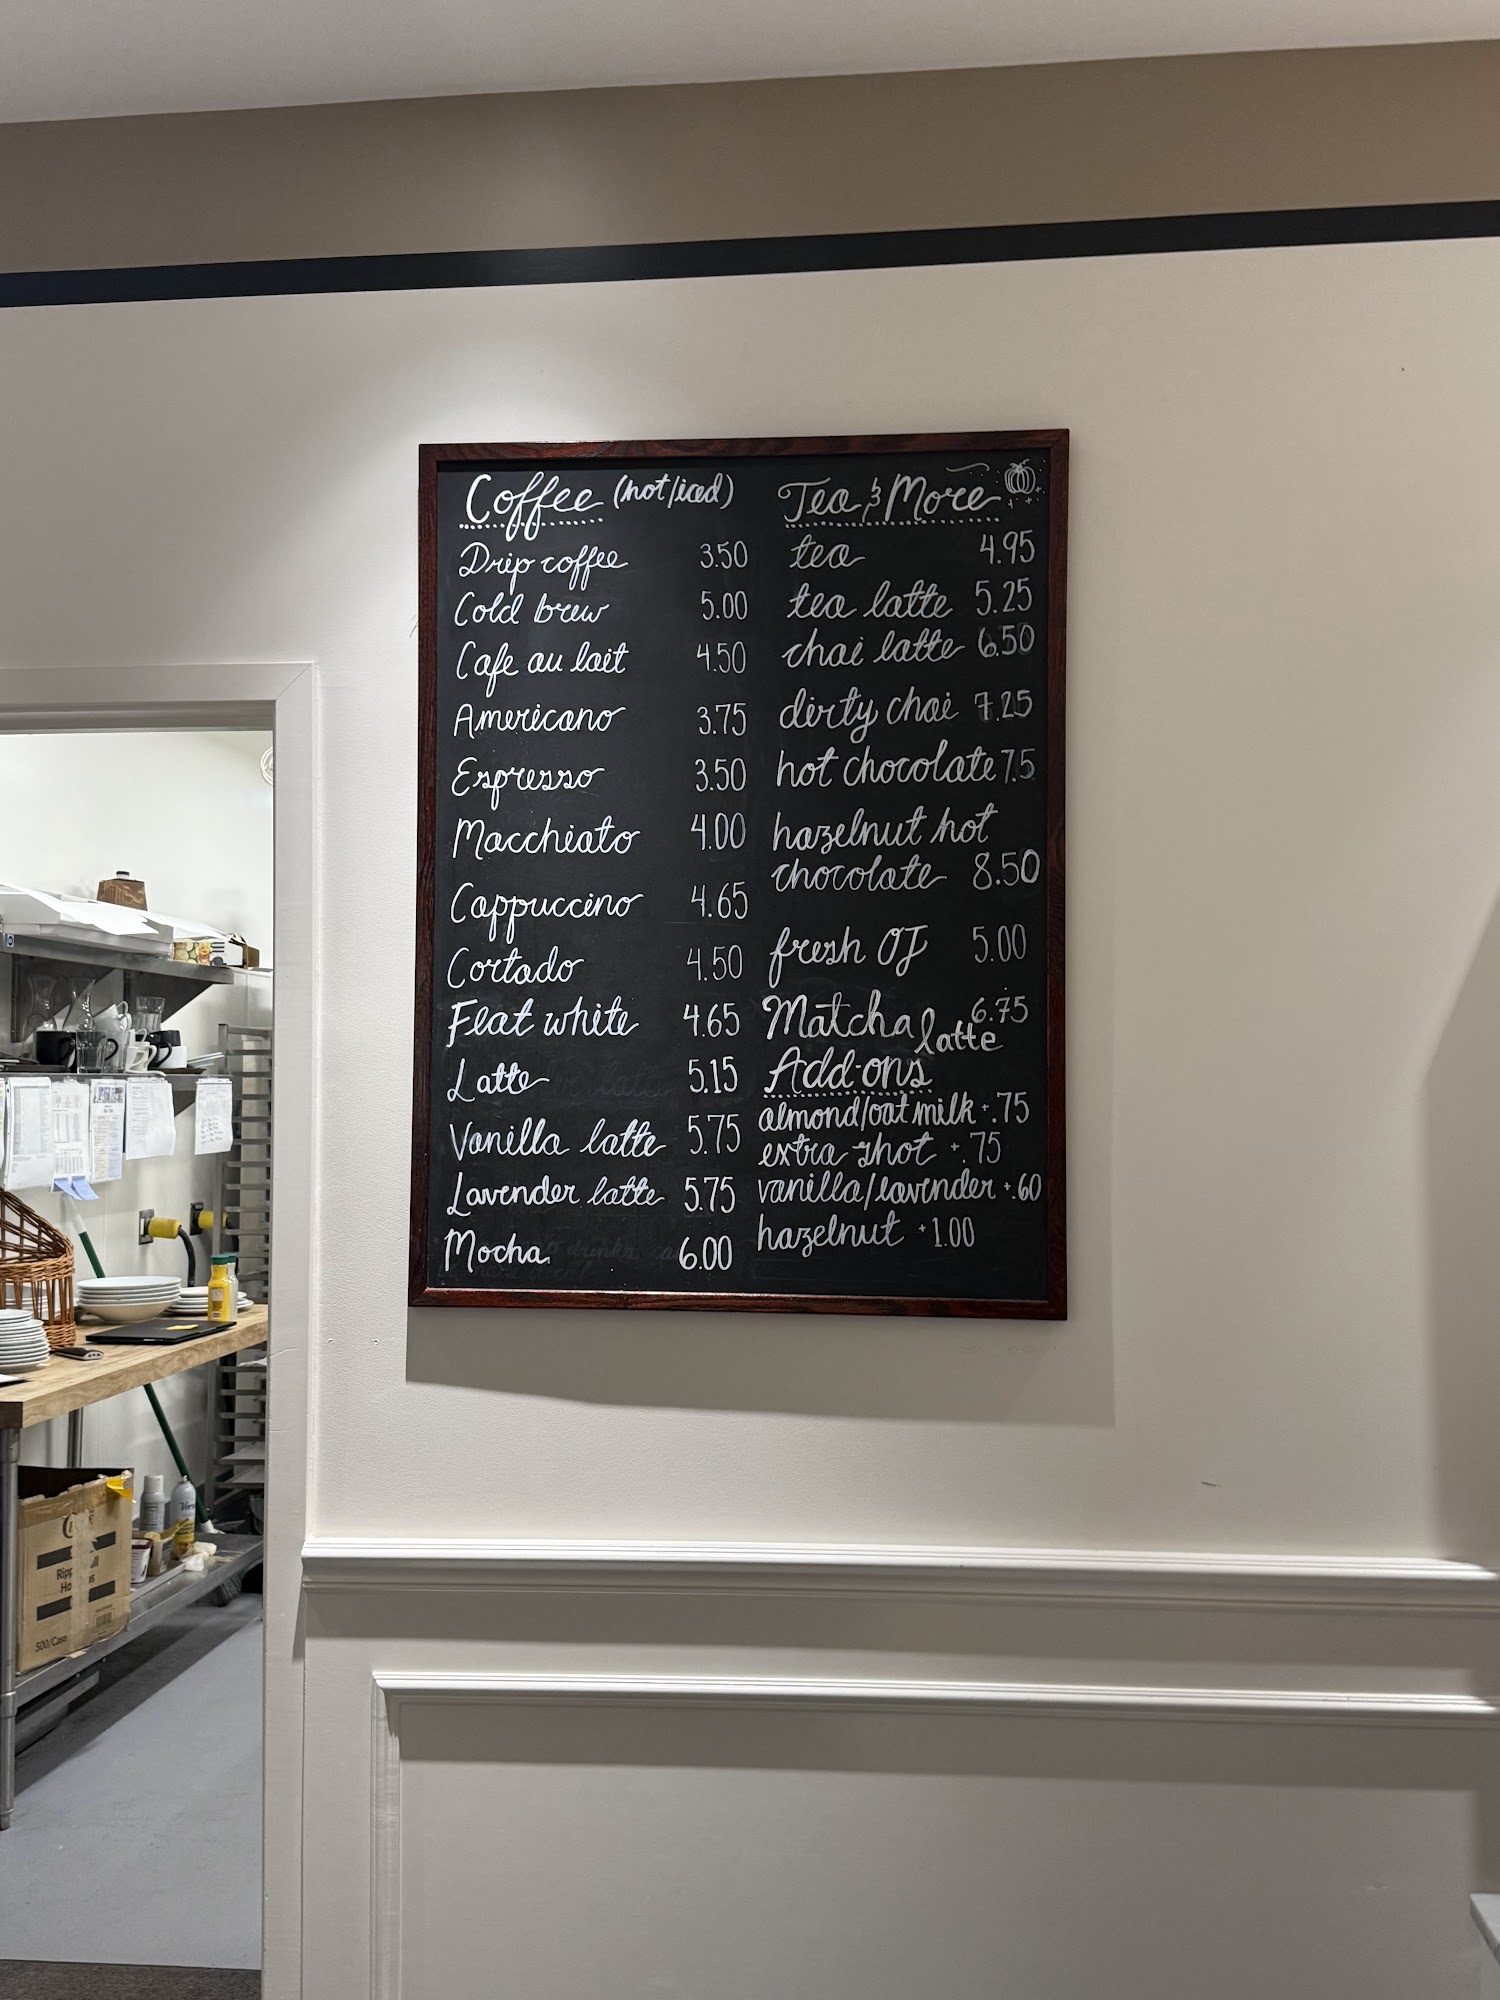 Coffee (hot/iced)
Drip coffee 3.50
Cold brew 5.00
Cafe au lait 4.50
Americano 3.75
Espresso 3.50
Macchiato 4.00
Cappuccino 4.65
Cortado 4.50
Flat white 4.65
Latte 5.15
Vanilla latte 5.75
Lavender latte 5.75
Mocha 6.00
Tea & More
tea 4.95
tea latte 5.25
chai latte 6.50
dirty chai 7.25
hot chocolate 7.5
hazelnut hot
chocolate 8.50
fresh OJ 5.00
Matcha latte 6.75
Add-ons
almond/oat milk +.75
extra shot +.75
vanilla/lavender +.60
hazelnut +1.00
500/Case